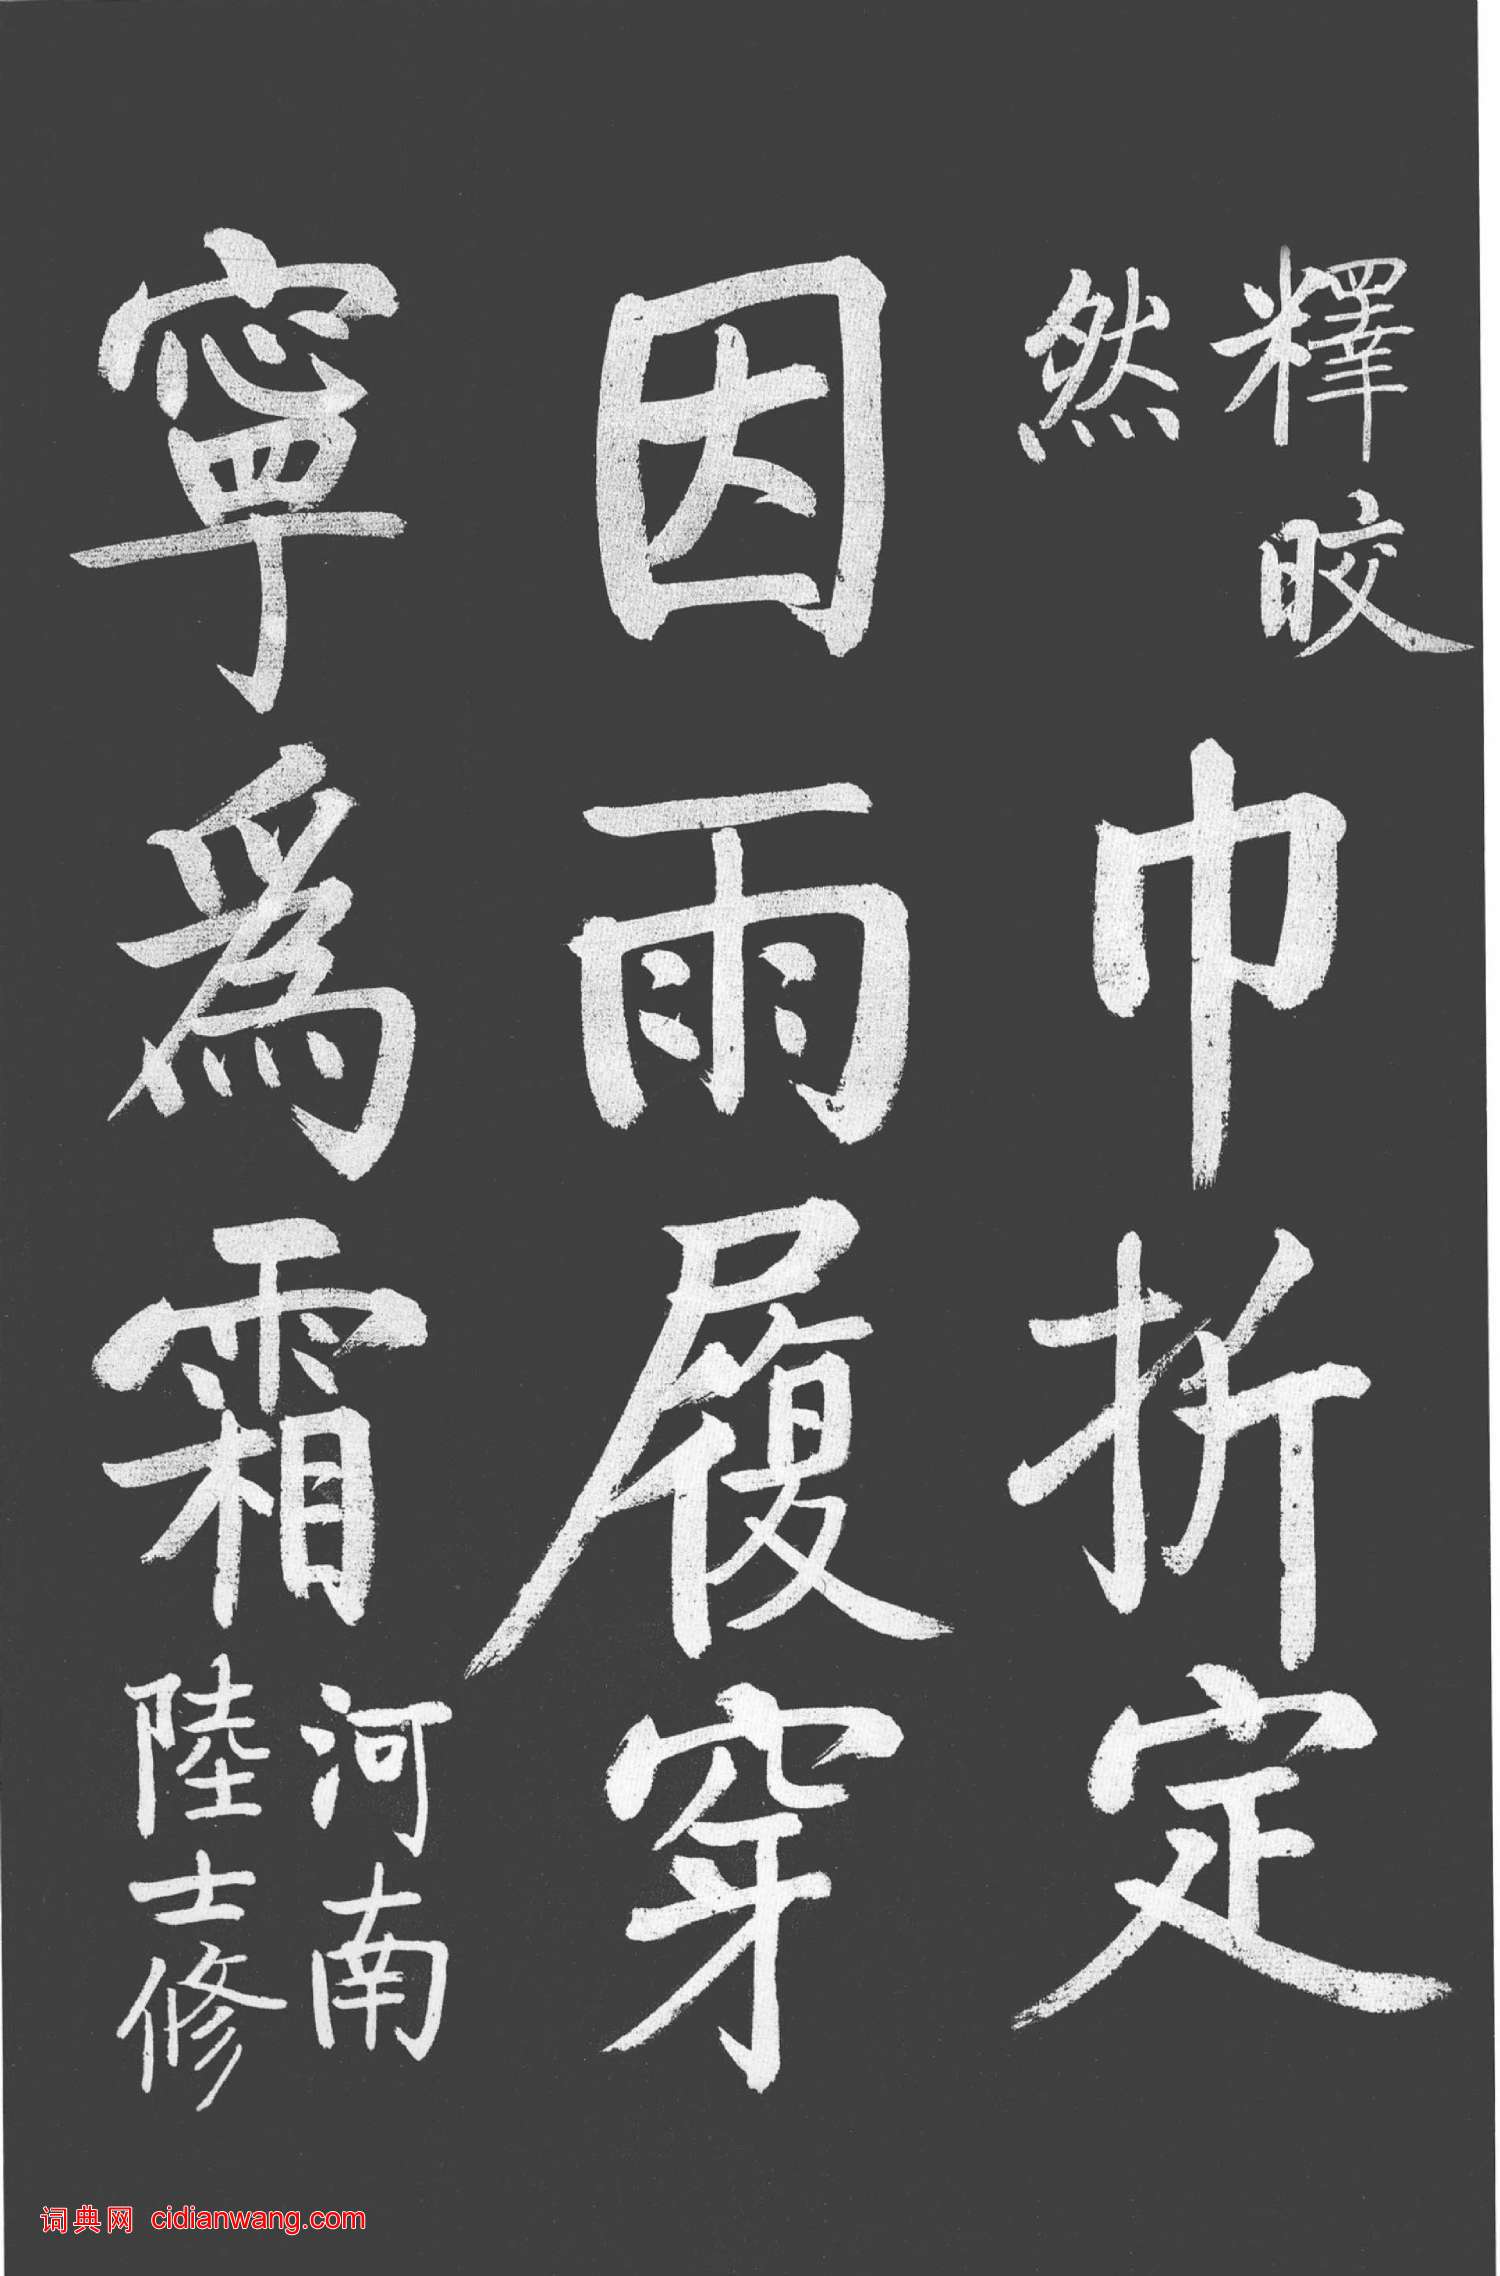 釋皎
然
巾折定
因雨履穿
寧爲霜
河南
陸士修
词典网 cidianwang.com